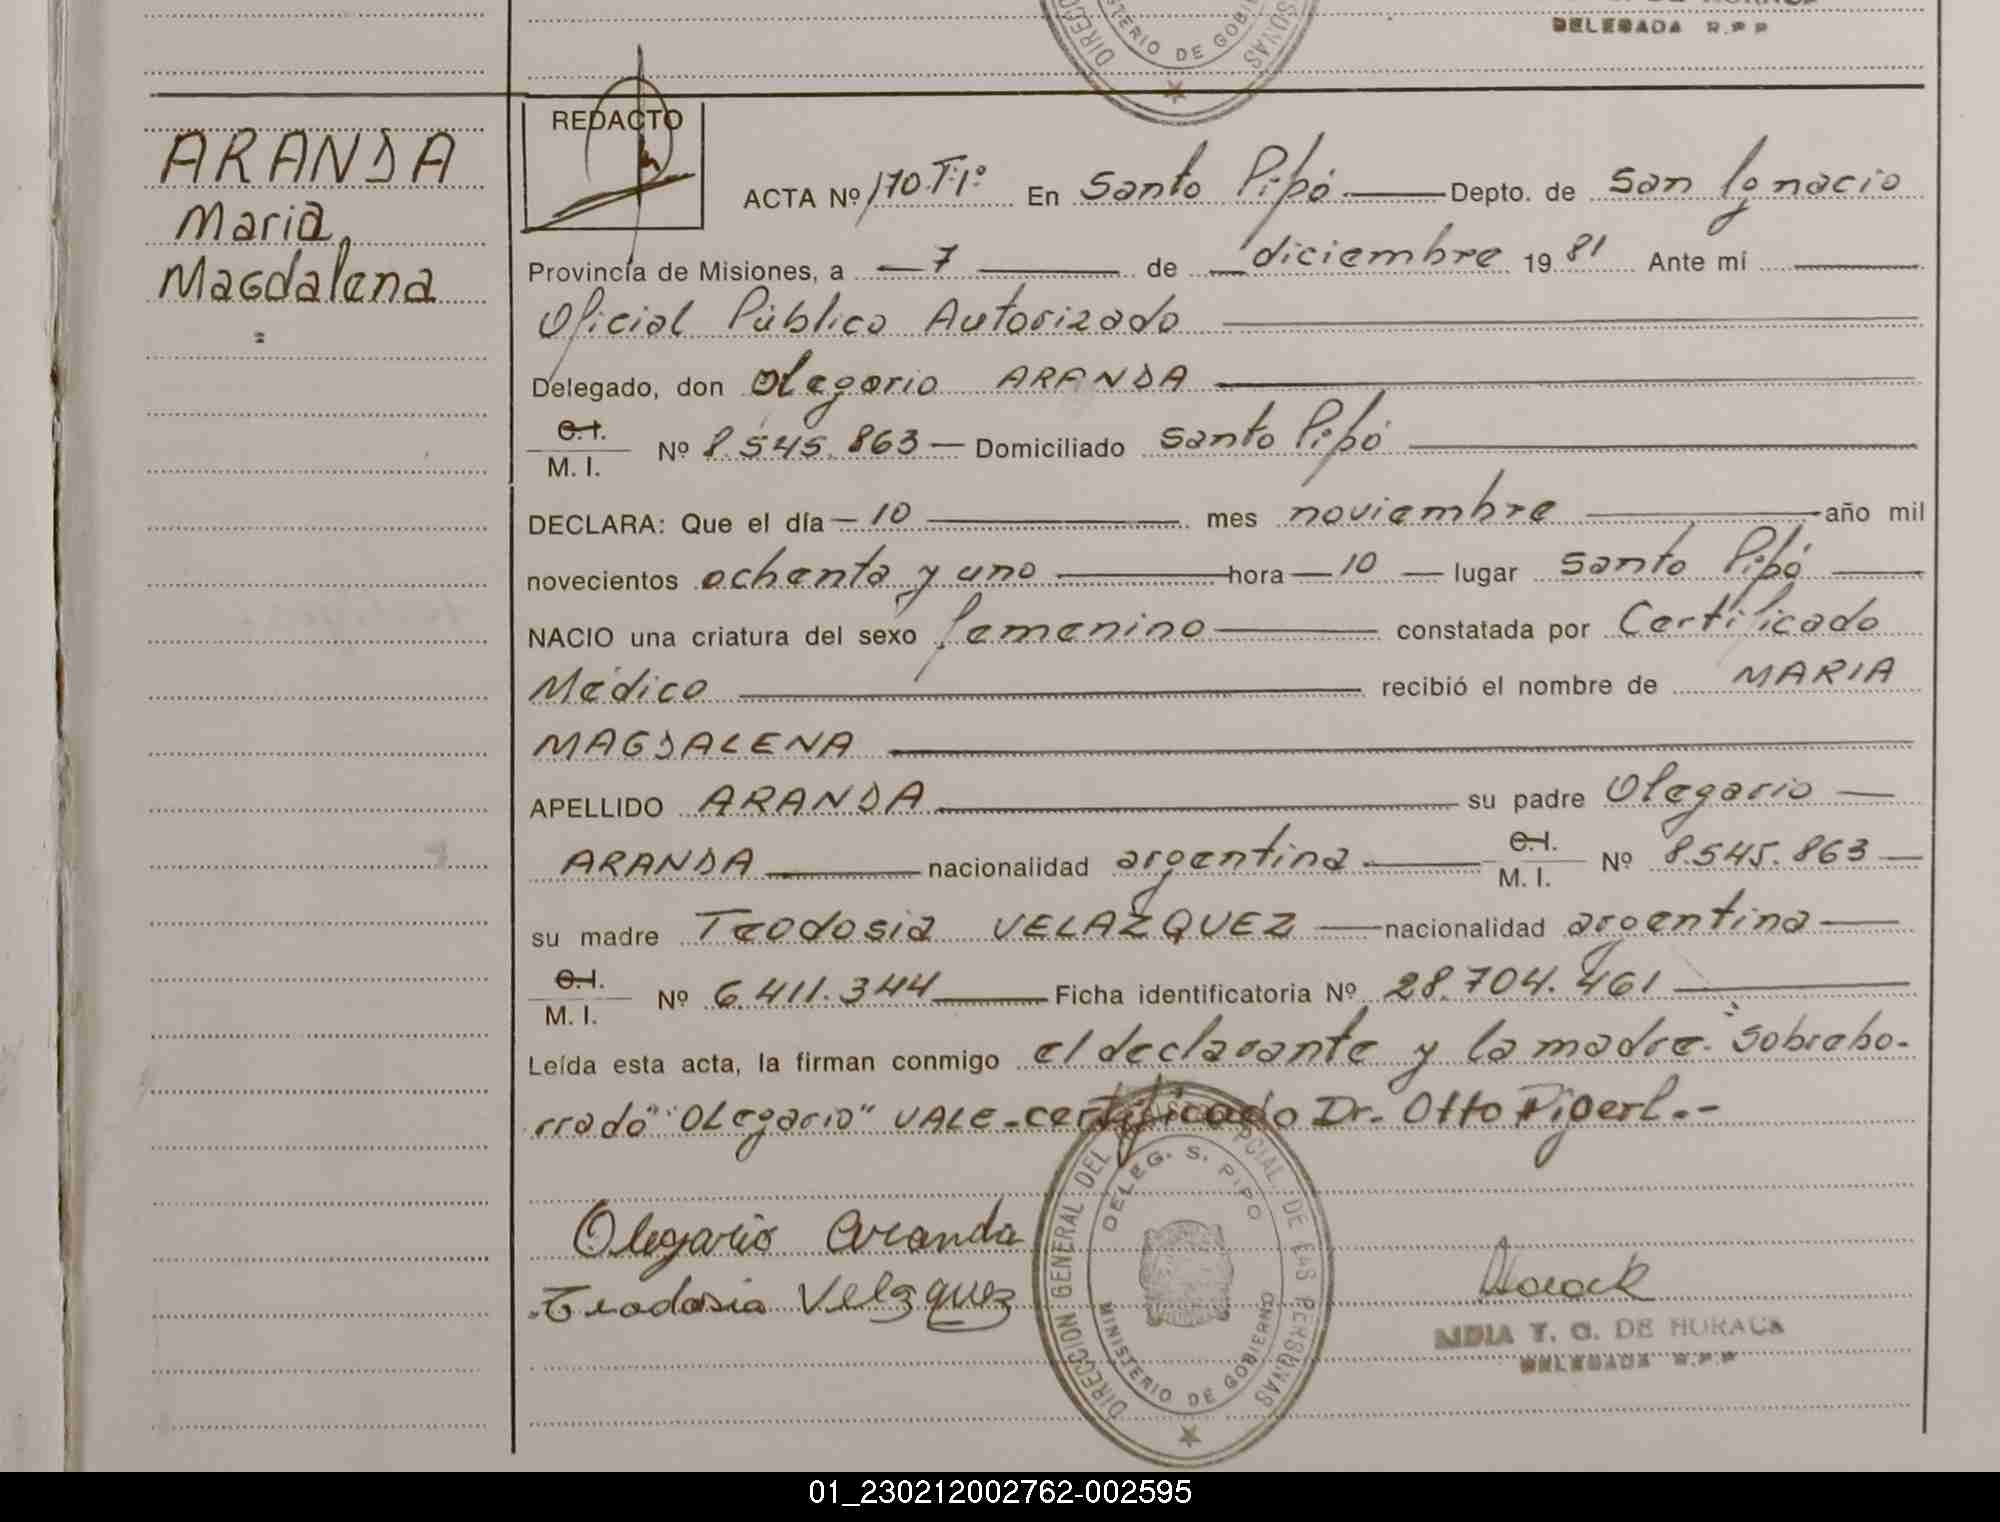 DELEGADA R.P.P
MINISTERIO DE GOBIERNO
ARANDA
Maria
Magdalena
REDACTO
ACTA Nº 170.T.1º En Santo Pipó Depto. de San Ignacio
Provincia de Misiones, a 7 de diciembre 19 81 Ante mí
Oficial Público Autorizado
Delegado, don Olegario ARANDA
C.I.
M. I. Nº 8.545.863 Domiciliado Santo Pipó
DECLARA: Que el día 10 mes noviembre año mil
novecientos ochenta y uno hora 10 lugar Santo Pipó
NACIO una criatura del sexo femenino constatada por Certificado
Médico recibió el nombre de MARIA
MAGDALENA
APELLIDO ARANDA su padre Olegario
ARANDA nacionalidad argentina C.I. M. I. Nº 8.545.863
su madre Teodosia VELAZQUEZ nacionalidad argentina
C.I.
M. I. Nº 6.411.344 Ficha identificatoria Nº 28.704.461
Leída esta acta, la firman conmigo el declarante y la madre. Sobrebo-
rrado "Olegario" VALE-certificado Dr. Otto Pigerl.-
Olegario Aranda
Teodosia Velazquez
DIRECCION GENERAL DEL REGISTRO PROVINCIAL DE LAS PERSONAS
DELEG. S. PIPO
MINISTERIO DE GOBIERNO
Horack
LIDIA T. G. DE HORACK
DELEGADA R.P.P
01_230212002762-002595